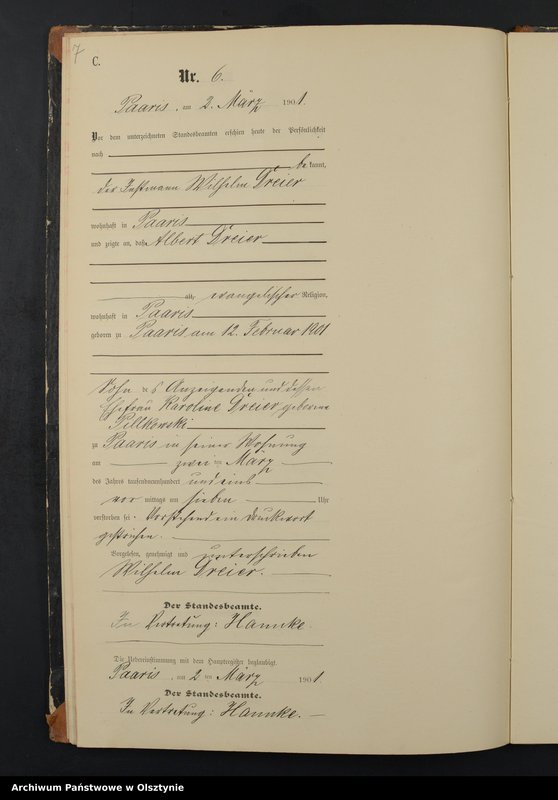 7
C.
Nr. 6.
Paaris, am 2. März 1901.
Vor dem unterzeichneten Standesbeamten erschien heute der Persönlichkeit
nach
be kannt,
der Instmann Wilhelm Dreier
wohnhaft in Paaris
und zeigte an, daß Albert Dreier
alt, evangelischer Religion,
wohnhaft in Paaris
geboren zu Paaris am 12. Februar 1901
Sohn des Anzeigenden und dessen
Ehefrau Karoline Dreier geborene
Pillkowski
zu Paaris in seiner Wohnung
am zwei ten März
des Jahres tausendneunhundert und eins
vor mittags um sieben Uhr
verstorben sei. Vorstehend ein Druckwort
gestrichen.
Vorgelesen, genehmigt und unterschrieben
Wilhelm Dreier.
Der Standesbeamte.
In Vertretung: Hannke.
Die Uebereinstimmung mit dem Hauptregister beglaubigt.
Paaris, am 2 ten März 1901
Der Standesbeamte.
In Vertretung: Hannke.
Archiwum Państwowe w Olsztynie